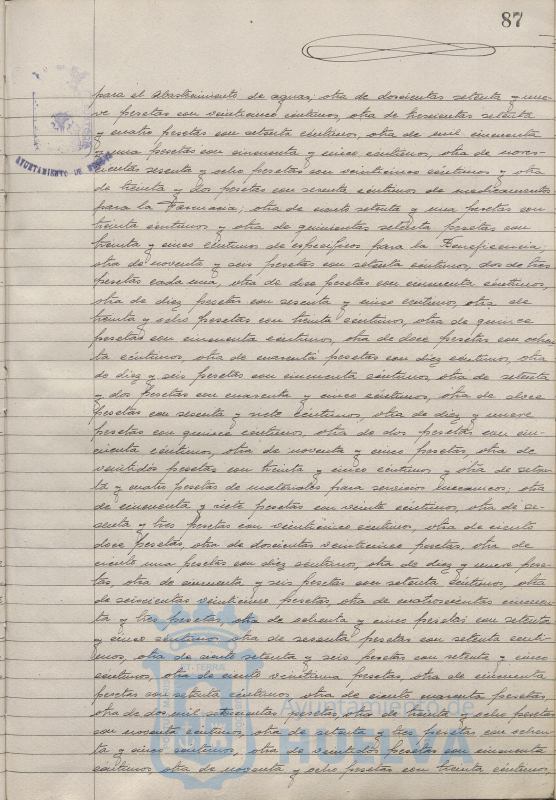 87
para el abastecimiento de aguas; otra de doscientas setenta y nue-
ve pesetas con veinticinco céntimos, otra de trescientas setenta
y cuatro pesetas con setenta céntimos, otra de mil cincuenta
y una pesetas con cincuenta y cinco céntimos, otra de nove-
cientas sesenta y ocho pesetas con veinticinco céntimos y otra
de treinta y dos pesetas con sesenta céntimos de medicamentos
para la Farmacia; otra de ciento setenta y una pesetas con
treinta céntimos y otra de quinientas setenta pesetas con
treinta y cinco céntimos de específicos para la Beneficencia;
otra de noventa y seis pesetas con setenta céntimos, dos de tres
pesetas cada una, otra de diez pesetas con cincuenta céntimos,
otra de diez pesetas con sesenta y cinco céntimos, otra de
treinta y ocho pesetas con treinta céntimos, otra de quince
pesetas con cincuenta céntimos, otra de doce pesetas con ochen-
ta céntimos, otra de cuarenta pesetas con diez céntimos, otra
de diez y seis pesetas con cincuenta céntimos, otra de setenta
y dos pesetas con cuarenta y cinco céntimos, otra de doce
pesetas con sesenta y siete céntimos, otra de diez y nueve
pesetas con quince céntimos, otra de dos pesetas con cin-
cuenta céntimos, otra de noventa y cinco pesetas, otra de
veintidós pesetas con treinta y cinco céntimos y otra de seten-
ta y cuatro pesetas de materiales para servicios mecánicos; otra
de cincuenta y siete pesetas con veinte céntimos, otra de se-
senta y tres pesetas con veinticinco céntimos, otra de ciento
doce pesetas, otra de doscientas veinticinco pesetas, otra de
ciento una pesetas con diez céntimos, otra de diez y nueve pese-
tas, otra de cincuenta y seis pesetas con setenta céntimos, otra
de seiscientas veinticinco pesetas, otra de cuatrocientas cincuen-
ta y tres pesetas, otra de ochenta y cinco pesetas con setenta
y cinco céntimos, otra de sesenta pesetas con setenta cénti-
mos, otra de ciento setenta y seis pesetas con setenta y cinco
céntimos, otra de ciento veintiuna pesetas, otra de cincuenta
pesetas con setenta céntimos, otra de ciento cuarenta pesetas,
otra de dos mil setecientas pesetas, otra de treinta y ocho pesetas
con noventa céntimos, otra de setenta y tres pesetas con ochen-
ta y cinco céntimos, otra de veintidós pesetas con cincuenta
céntimos, otra de noventa y ocho pesetas con treinta céntimos,
AYUNTAMIENTO DE
Ayuntamiento de
HUELVA